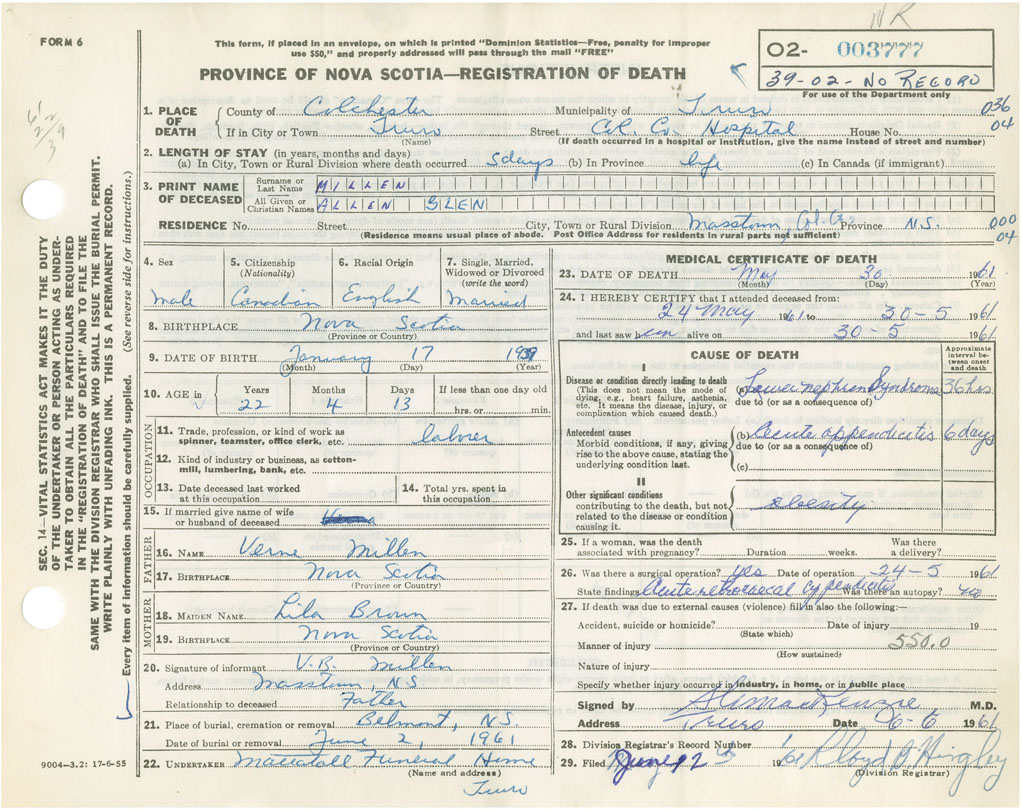 NR
FORM 6
This form, if placed in an envelope, on which is printed "Dominion Statistics—Free, penalty for improper
use $50," and properly addressed will pass through the mail "FREE"
PROVINCE OF NOVA SCOTIA—REGISTRATION OF DEATH
02- 003777
39-02-NO RECORD
For use of the Department only
SEC. 14—VITAL STATISTICS ACT MAKES IT THE DUTY
OF THE UNDERTAKER OR PERSON ACTING AS UNDER-
TAKER TO OBTAIN ALL THE PARTICULARS REQUIRED
IN THE "REGISTRATION OF DEATH" AND TO FILE THE
SAME WITH THE DIVISION REGISTRAR WHO SHALL ISSUE THE BURIAL PERMIT.
WRITE PLAINLY WITH UNFADING INK. THIS IS A PERMANENT RECORD.
Every item of information should be carefully supplied. (See reverse side for instructions.)
1. PLACE OF DEATH County of Colchester Municipality of Truro 036
If in City or Town Truro Street Col. Co. Hospital House No. 04
(Name) (If death occurred in a hospital or institution, give the name instead of street and number)
2. LENGTH OF STAY (in years, months and days)
(a) In City, Town or Rural Division where death occurred 5 days (b) In Province life (c) In Canada (if immigrant)
3. PRINT NAME OF DECEASED Surname or Last Name MILLEN
All Given or Christian Names ALLEN GLEN
RESIDENCE No. Street City, Town or Rural Division Masstown, Col. Co. Province N.S. 000
(Residence means usual place of abode. Post Office Address for residents in rural parts not sufficient) 04
4. Sex 5. Citizenship (Nationality) 6. Racial Origin 7. Single, Married, Widowed or Divorced (write the word)
Male Canadian English Married
8. BIRTHPLACE Nova Scotia
(Province or Country)
9. DATE OF BIRTH January 17 1939
(Month) (Day) (Year)
10. AGE in Years Months Days If less than one day old
22 4 13 hrs. or min.
OCCUPATION
11. Trade, profession, or kind of work as spinner, teamster, office clerk, etc. laborer
12. Kind of industry or business, as cotton-mill, lumbering, bank, etc.
13. Date deceased last worked at this occupation
14. Total yrs. spent in this occupation
15. If married give name of wife or husband of deceased
FATHER
16. NAME Verne Millen
17. BIRTHPLACE Nova Scotia
(Province or Country)
MOTHER
18. MAIDEN NAME Lila Brown
19. BIRTHPLACE Nova Scotia
(Province or Country)
20. Signature of informant V.B. Millen
Address Masstown, NS
Relationship to deceased Father
21. Place of burial, cremation or removal Belmont, NS
Date of burial or removal June 2, 1961
22. UNDERTAKER Mattatall Funeral Home
(Name and address)
Truro
9004-3.2: 17-6-55
MEDICAL CERTIFICATE OF DEATH
23. DATE OF DEATH May 30 1961
(Month) (Day) (Year)
24. I HEREBY CERTIFY that I attended deceased from:
24 May 1961 to 30-5 1961
and last saw him alive on 30-5 1961
CAUSE OF DEATH
Approximate interval between onset and death
I
Disease or condition directly leading to death (a) Lower nephron Syndrome 36 hrs
(This does not mean the mode of dying, e.g., heart failure, asthenia, etc. It means the disease, injury, or complication which caused death.)
due to (or as a consequence of)
Antecedent causes (b) Acute appendicitis 6 days
Morbid conditions, if any, giving rise to the above cause, stating the underlying condition last.
due to (or as a consequence of)
(c)
II
Other significant conditions contributing to the death, but not related to the disease or condition causing it.
obesity
25. If a woman, was the death associated with pregnancy? Duration weeks. Was there a delivery?
26. Was there a surgical operation? yes Date of operation 24-5 1961
State findings Acute retrocaecal appendicitis Was there an autopsy? no
27. If death was due to external causes (violence) fill in also the following:—
Accident, suicide or homicide? Date of injury 19
(State which)
Manner of injury 550.0
(How sustained)
Nature of injury
Specify whether injury occurred in industry, in home, or in public place
Signed by M.D.
Address Truro Date 6-6 1961
28. Division Registrar's Record Number
29. Filed June 12th 1961 Lloyd B Hingley
(Division Registrar)